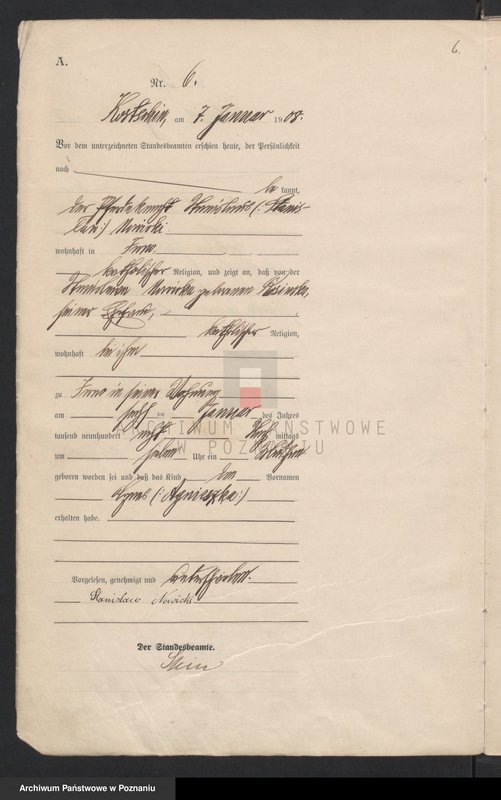 6.
A.
Nr. 6.
Kostschin, am 7. Januar 1908.
Vor dem unterzeichneten Standesbeamten erschien heute, der Persönlichkeit
nach
be kannt,
der Pferdeknecht Stanislaus (: Stanis-
law :) Nowicki
wohnhaft in Iwno,
katholischer Religion, und zeigt an, daß von der
Nowicka geborenen
seiner Ehefrau,
katholischer Religion,
wohnhaft bei ihm
zu Iwno in seiner Wohnung
am sechsten Januar des Jahres
tausend neunhundert acht Nach mittags
um Uhr ein Mädchen
geboren worden sei und daß das Kind den Vornamen
Agnes (: Agnieszka :)
erhalten habe.
Vorgelesen, genehmigt und unterschrieben.
Stanisław Nowicki
Der Standesbeamte.
ARCHIWUM PAŃSTWOWE
W POZNANIU
Archiwum Państwowe w Poznaniu